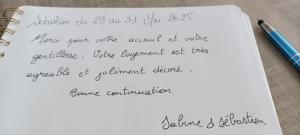 Sébastien du 29 au 31 Mai 2025
Merci pour votre accueil et votre
gentillesse. Votre logement est très
agréable et joliment décoré.
Bonne continuation
Sabine & Sébastien